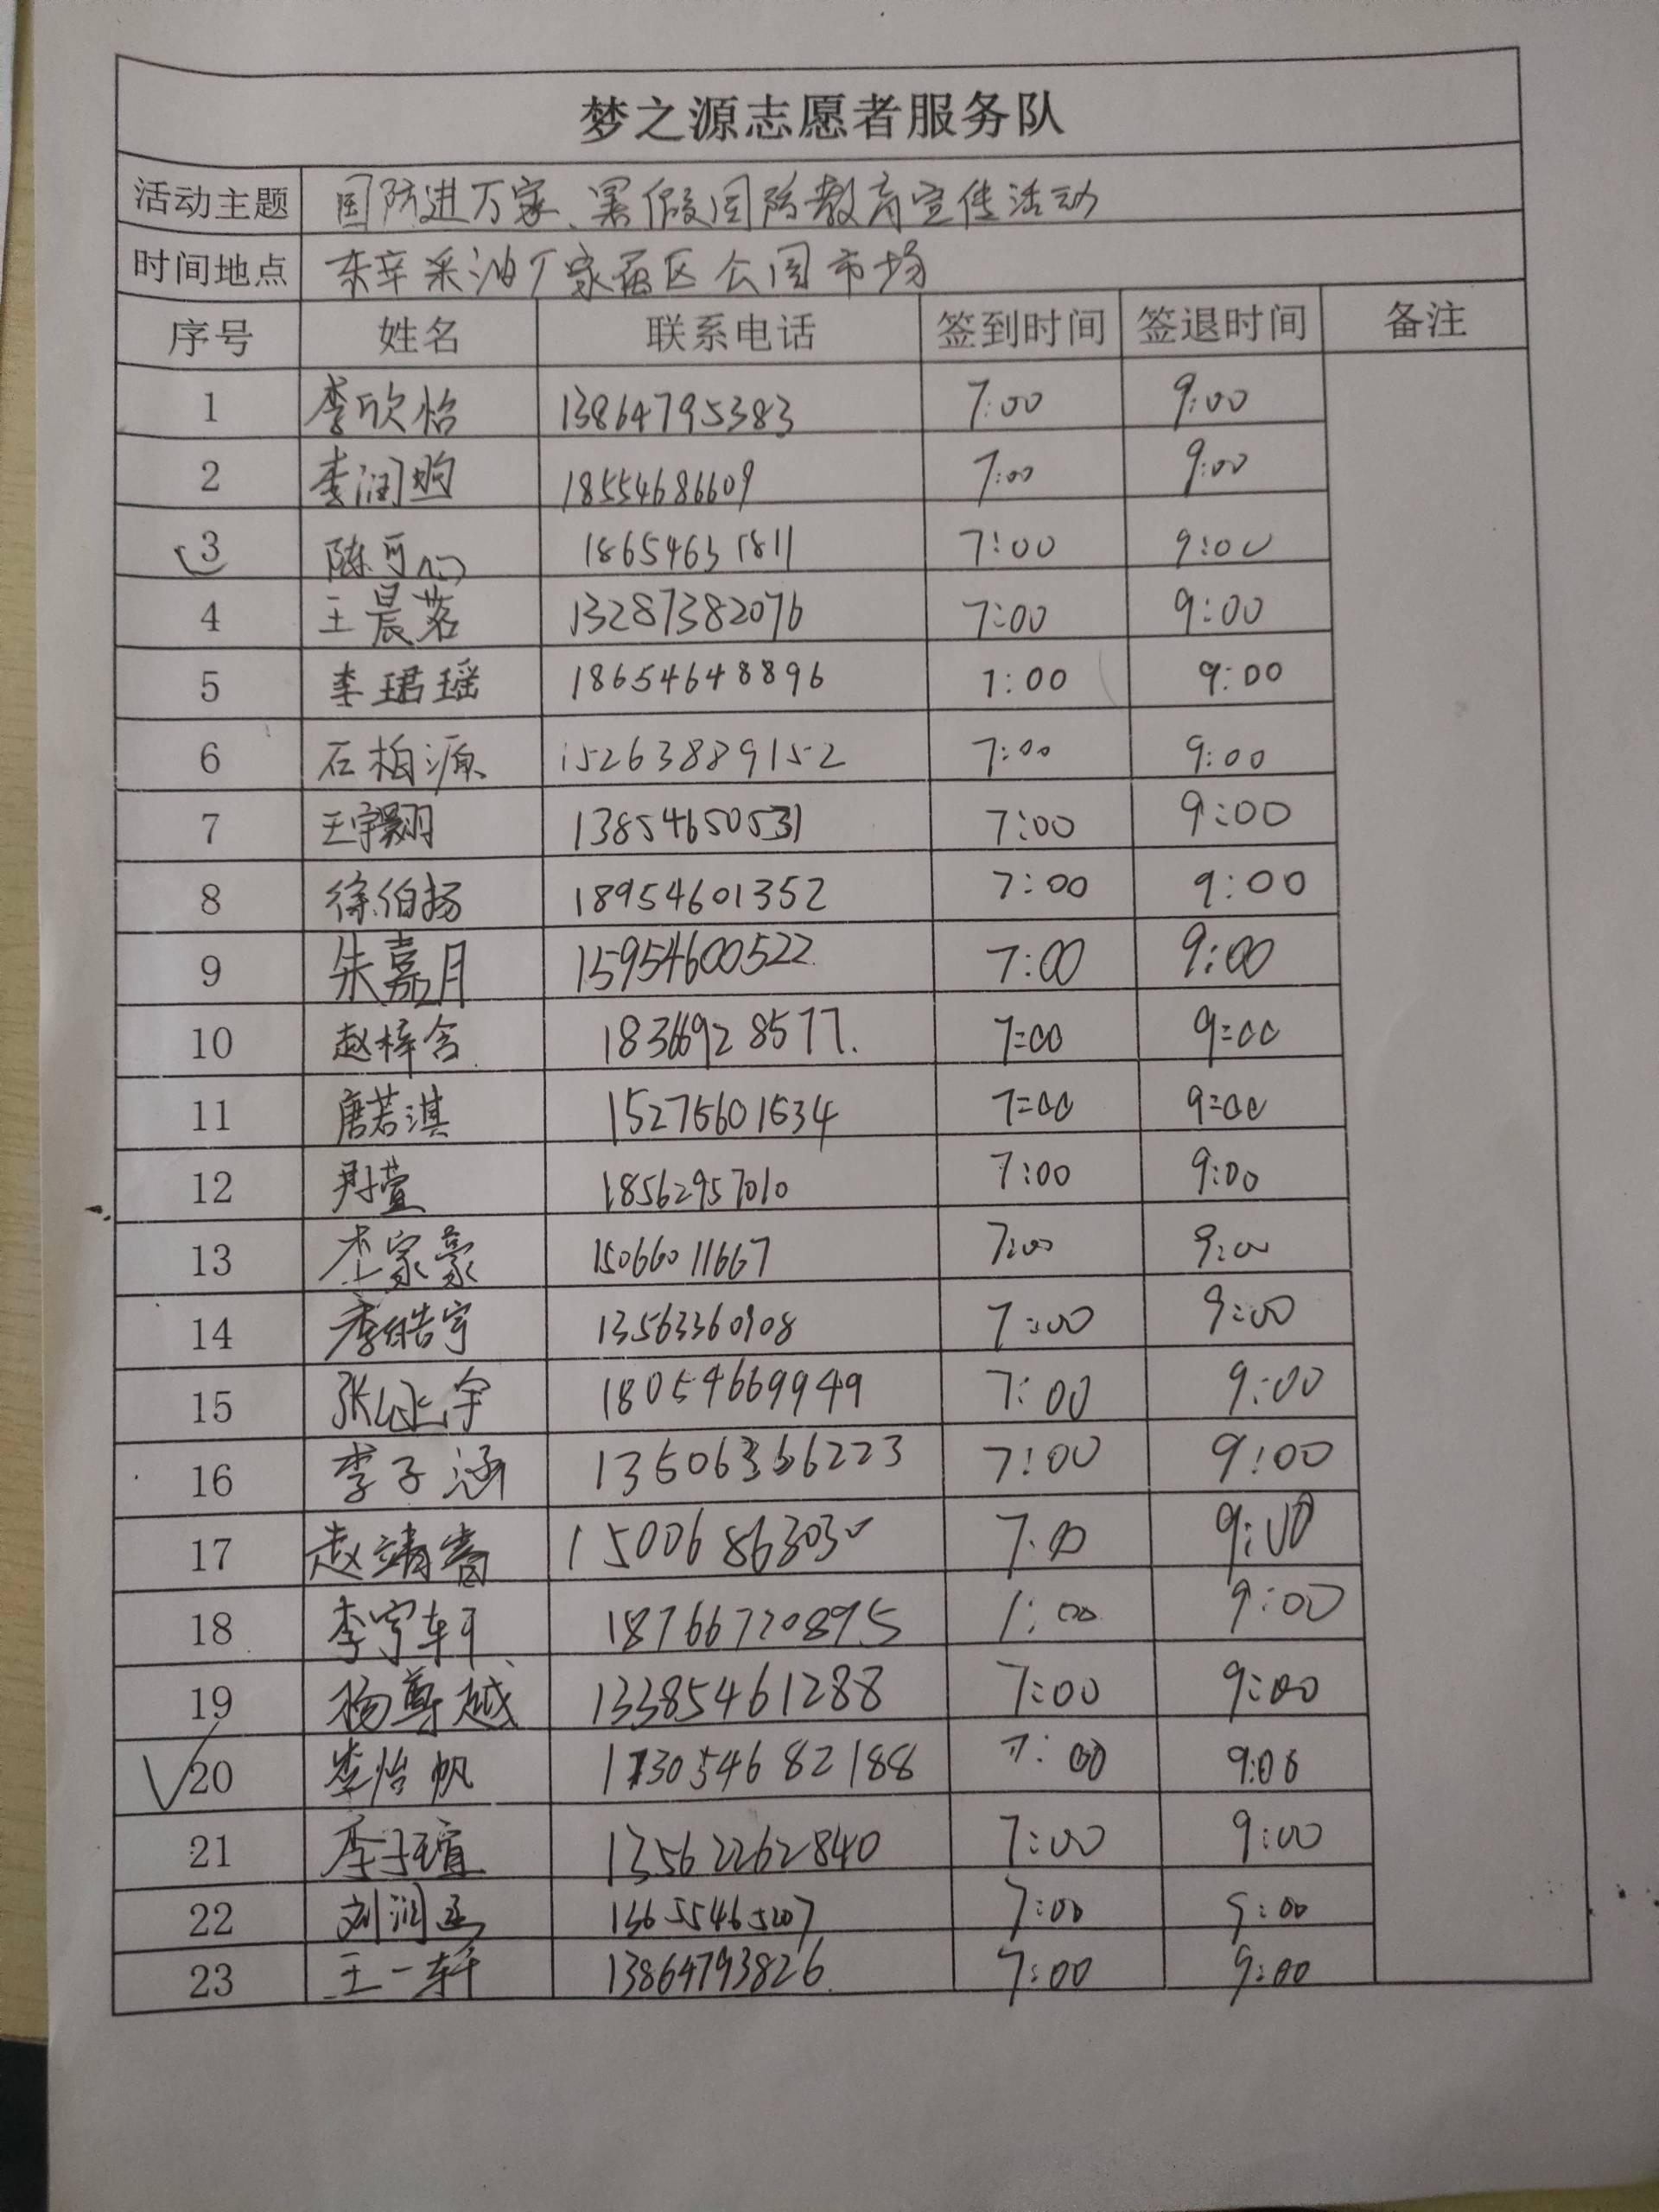 梦之源志愿者服务队
活动主题 国防进万家、暑假国防教育宣传活动
时间地点 东辛采油厂家属区公园市场
序号 姓名 联系电话 签到时间 签退时间 备注
1 李欣怡 13864795383 7:00 9:00
2 李润昫 18554686609 7:00 9:00
3 陈可心 18654631811 7:00 9:00
4 王晨茗 13287382076 7:00 9:00
5 李珺瑶 18654648896 7:00 9:00
6 石柏源 15263889152 7:00 9:00
7 王宇翾 13854650531 7:00 9:00
8 徐伯扬 18954601352 7:00 9:00
9 朱嘉月 15954600522 7:00 9:00
10 赵梓含 18366928577. 7:00 9:00
11 唐若淇 15275601534 7:00 9:00
12 尹萱 18562957010 7:00 9:00
13 李家豪 15066011667 7:00 9:00
14 李皓宇 13563360908 7:00 9:00
15 张 宇 18054669949 7:00 9:00
16 李子涵 13506366223 7:00 9:00
17 赵靖 15006863030 7:00 9:00
18 李宇轩 18766720895 7:00 9:00
19 杨尊越 13385461288 7:00 9:00
20 李怡帆 13054682188 7:00 9:00
21 李子瑄 13562262840 7:00 9:00
22 刘润 13655465207 7:00 9:00
23 王一轩 13864793826 7:00 9:00